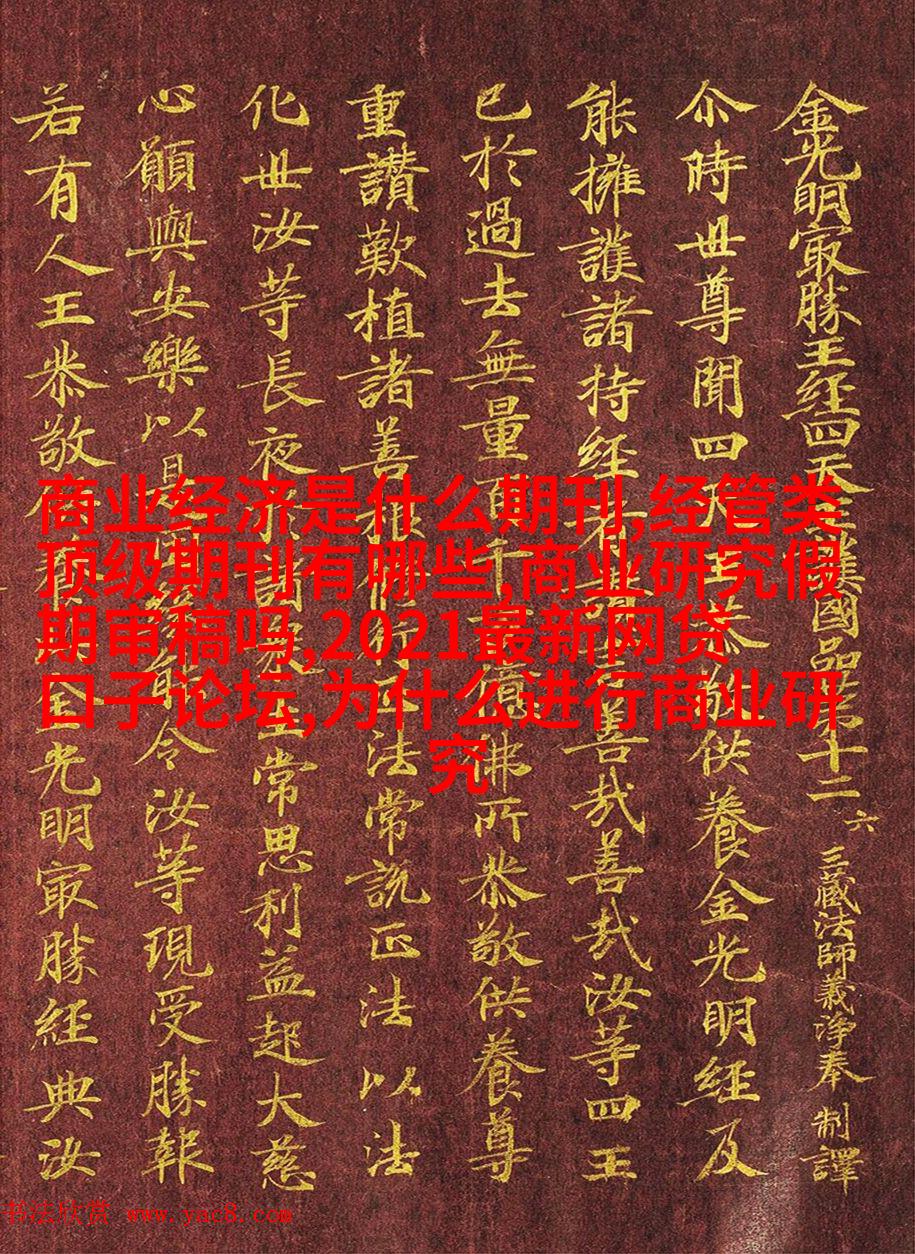 金光明冣勝王经四天護國品第十二 六 三藏法師義淨奉 制譯
尒時世尊聞四恭供養金光明經及
能擁護諸持經者善哉善哉汝等四王
已於過去無量百千億佛所恭敬供養尊
重讃歎植諸善根行正法常説正法以法
化世汝等長夜於生常思利益起大慈
心願與安樂以是令汝等現受勝報
若有人王恭敬光明冣勝經典汝
商业经济是什么期刊,经管类
顶级期刊有哪些,商业研究假
期审稿吗,2021最新网贷
口子论坛,为什么进行商业研
究
书法欣赏 www.yac8.com